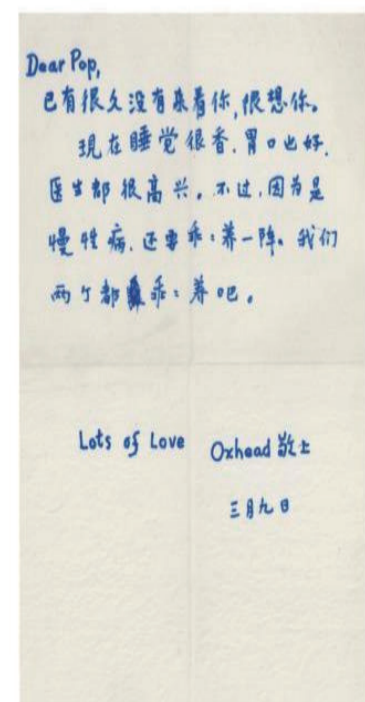 Dear Pop,
已有很久没有来看你,很想你。
現在睡觉很香.胃口也好.
医生都很高兴。不过.因为是
慢性病.还要乖:养一阵。我们
两个都乖:养吧。
Lots of Love
Oxhead 敬上
三月九日